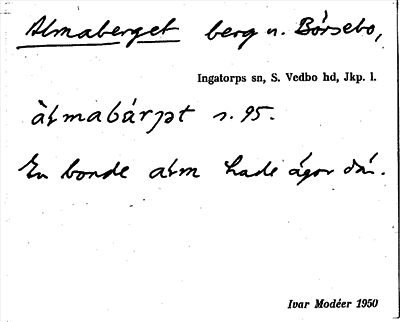 Almaberget berg n. Börsebo,
Ingatorps sn, S. Vedbo hd, Jkp. l.
àlmabárjət s. 95.
En bonde alm hade ägor där.
Ivar Modéer 1950